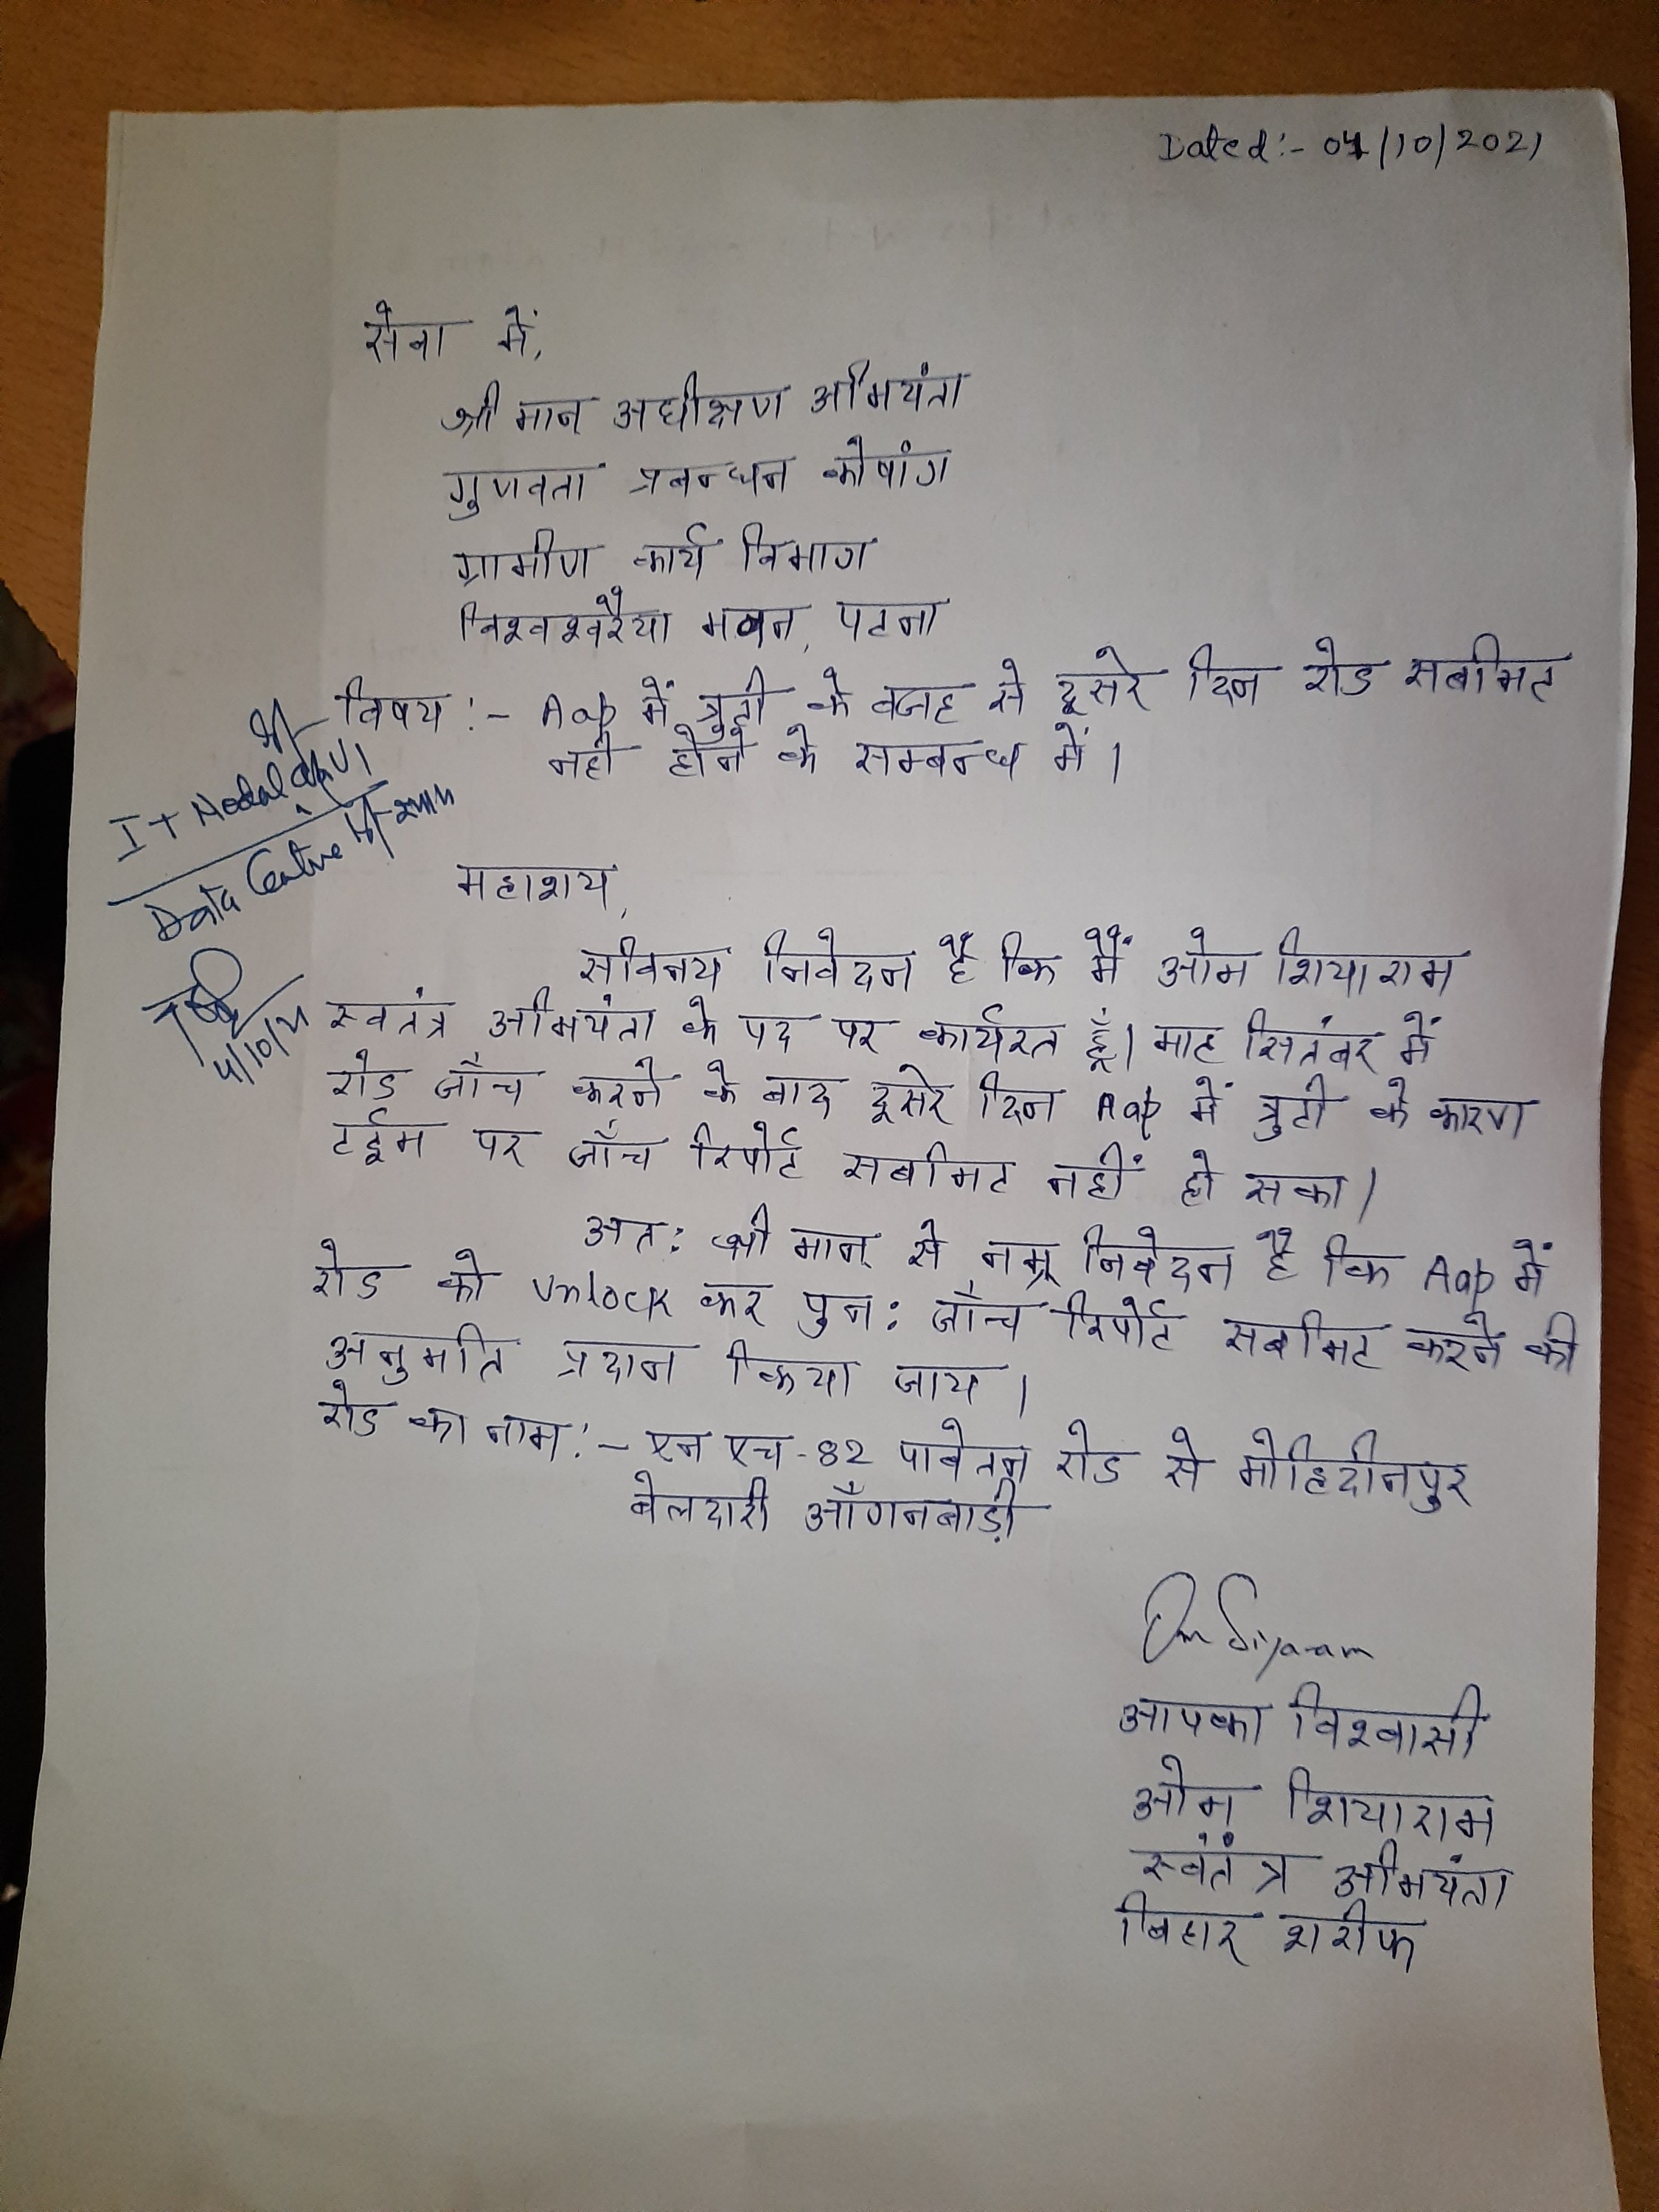 Dated:- 04/10/2021
सेवा में,
श्री मान् अधीक्षण अभियंता
गुणवता प्रबन्धन कोषांग
ग्रामीण कार्य विभाग
विश्वश्वरैया भवन, पटना
विषय :- App में त्रुटी के वजह से दूसरे दिन रोड सबमिट
नहीं होने के सम्बन्ध में।
IT Nodal
Data Centre
4/10/21
महाशय,
सविनय निवेदन है कि मैं ओम शियाराम
स्वतंत्र अभियंता के पद पर कार्यरत हूँ। माह सितंबर में
रोड जाँच करने के बाद दूसरे दिन App में त्रुटी के कारण
टाईम पर जाँच रिपोर्ट सबमिट नहीं हो सका।
अत: श्री मान् से नम्र निवेदन है कि App में
रोड को Unlock कर पुन: जाँच रिपोर्ट सबमिट करने की
अनुमति प्रदान किया जाय।
रोड का नाम :- एन एच-82 पावेतन रोड से मोहिदीनपुर
बेलदारी आँगनबाड़ी
Om Siyaram
आपका विश्वासी
ओम शियाराम
स्वतंत्र अभियंता
बिहार शरीफ